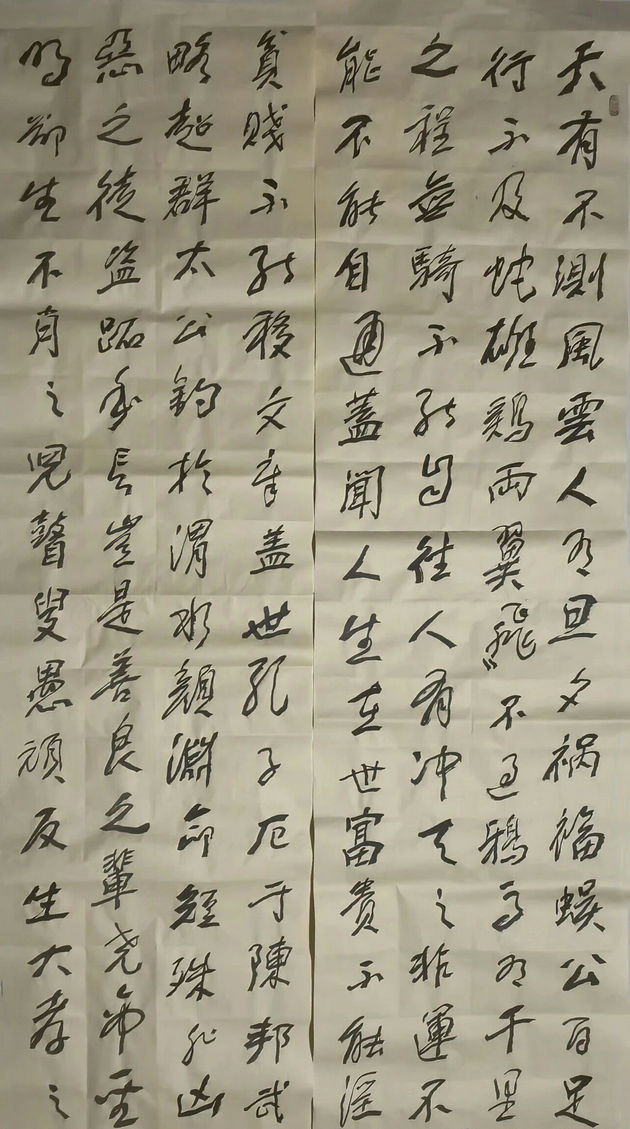 天有不測風雲人有旦夕祸福蜈公百足
行不及蛇雄鷄兩翼飛不過鴉馬有千里
之程無騎不能自往人有冲天之非運不
能不能自通蓋聞人生在世富貴不能淫
貧賤不能移文章盖世孔子厄于陳邦武
略超群太公釣於渭水顏淵命短殊非凶
惡之徒盜跖年長豈是善良之輩堯帝聖
明卻生不肖之兒瞽叟愚頑反生大孝之